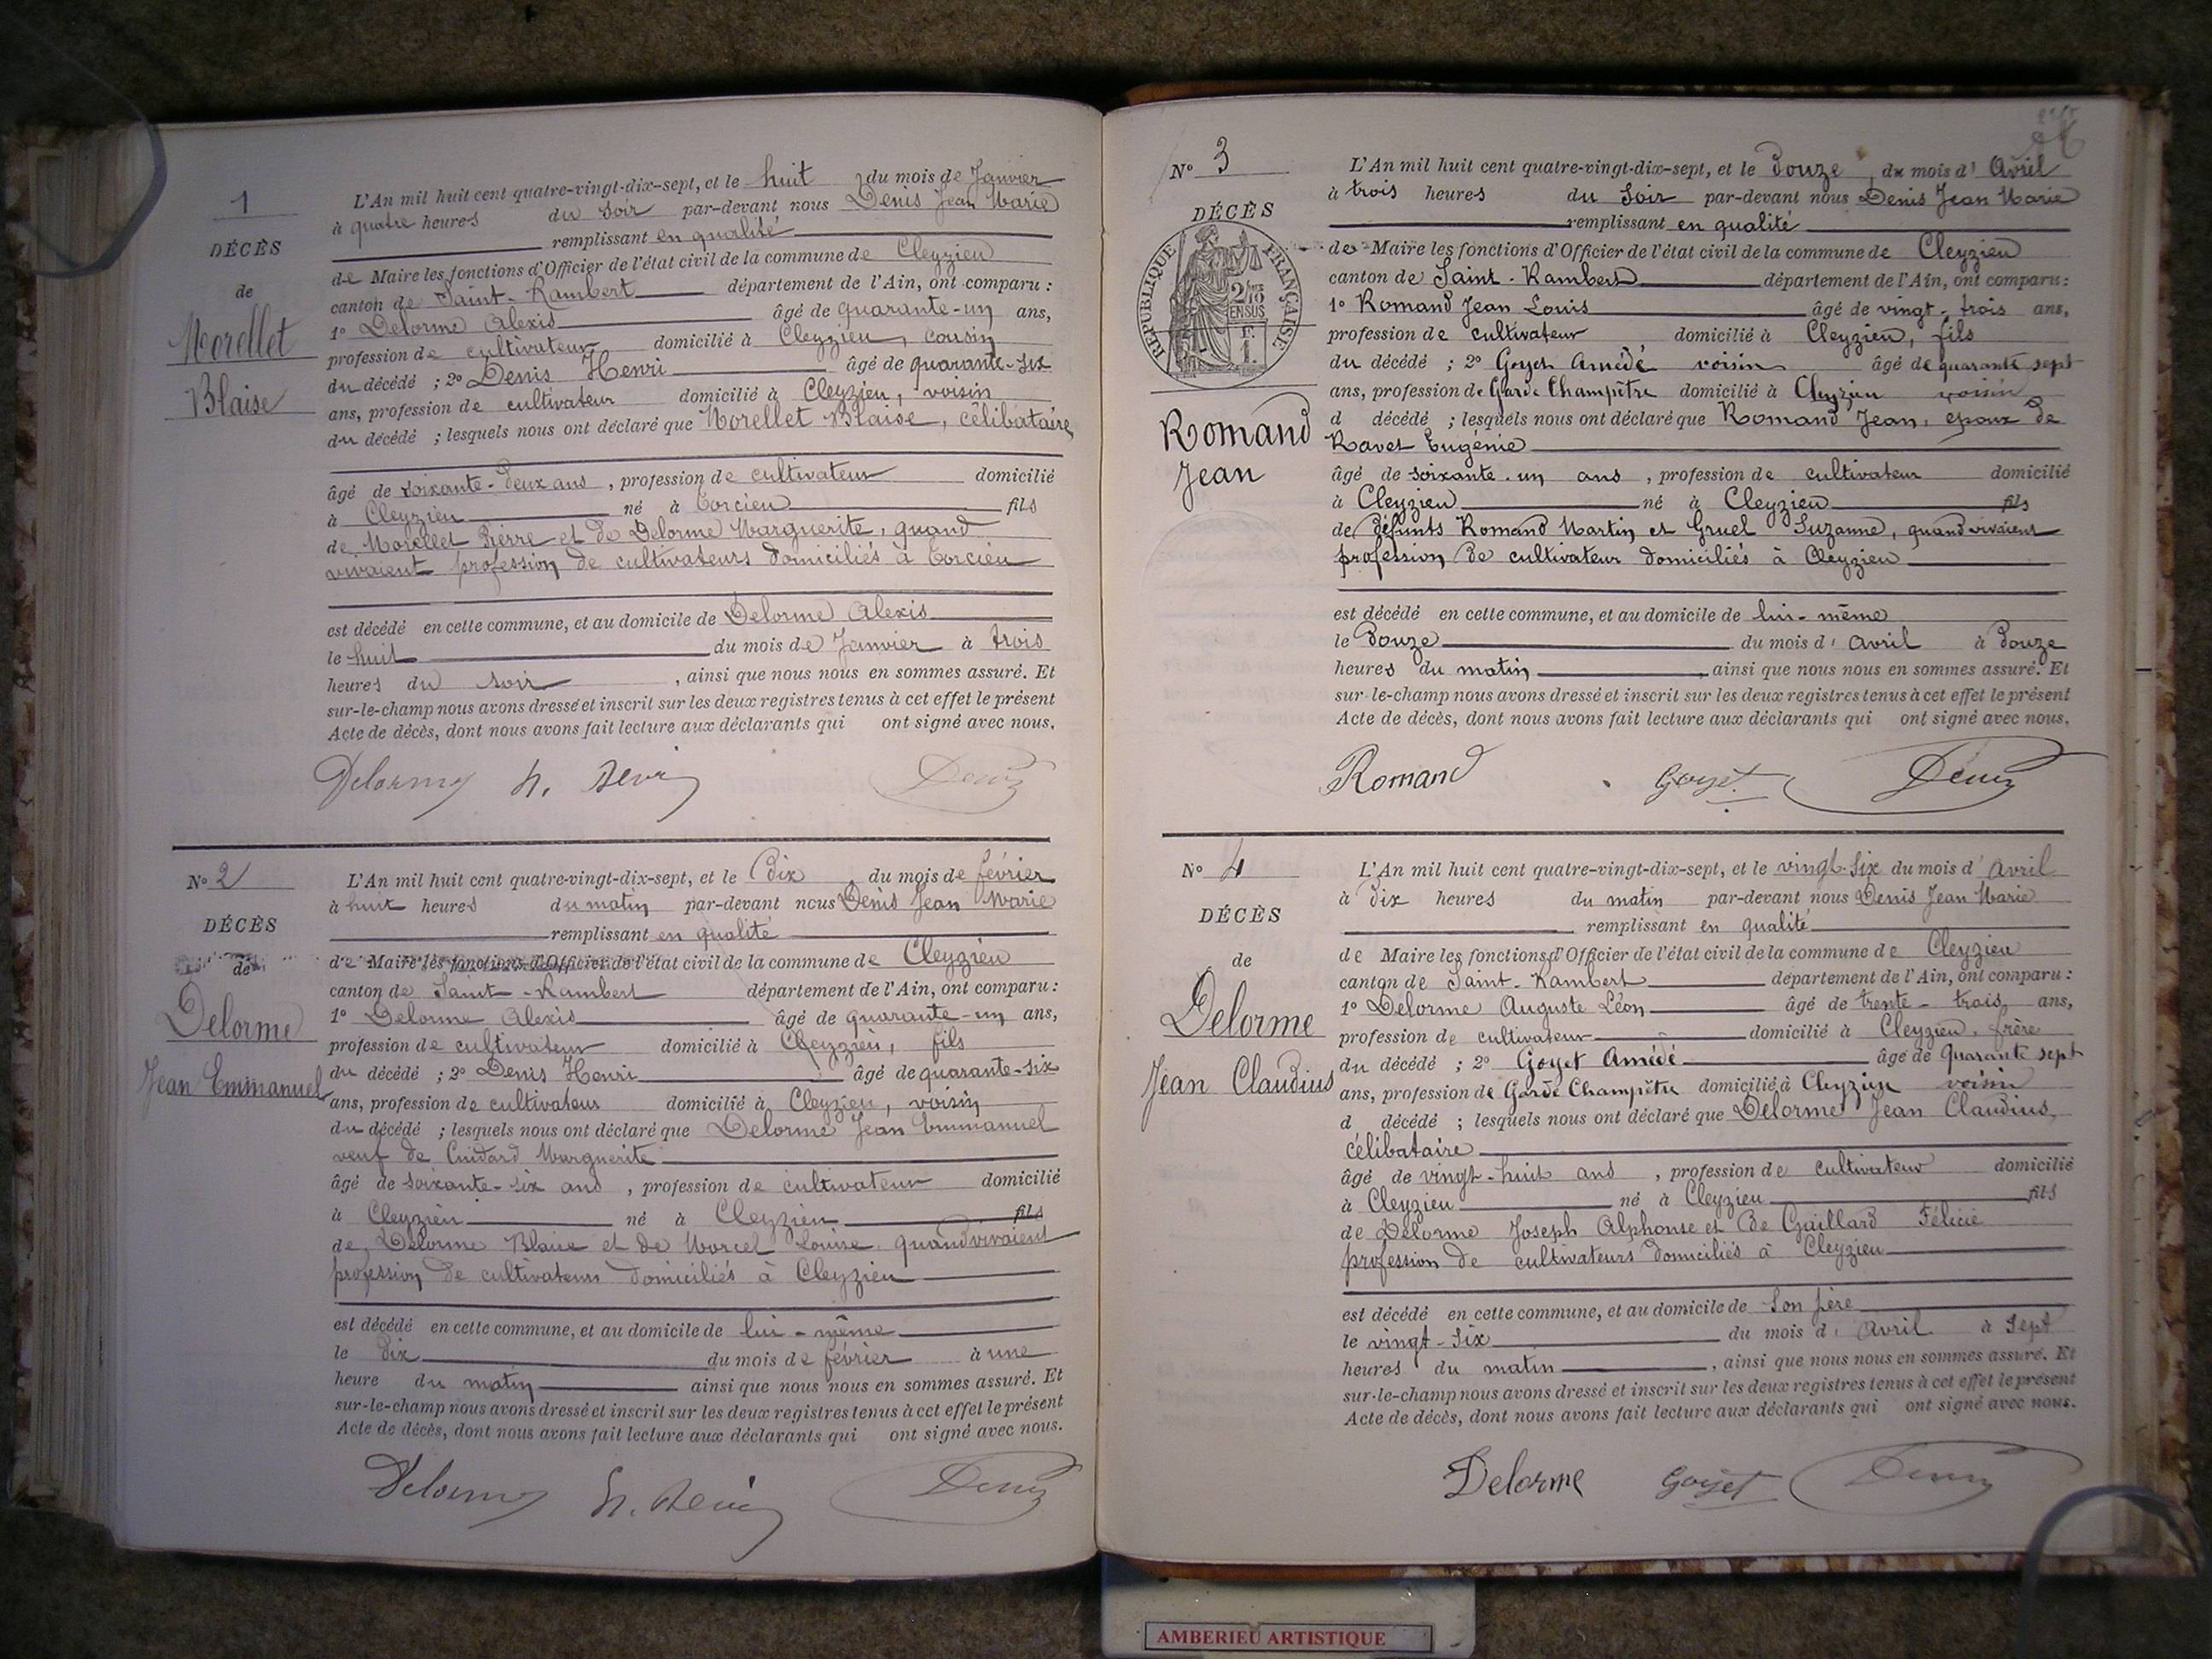 1
DÉCÈS
de
Morellet
Blaise
L'An mil huit cent quatre-vingt-dix-sept, et le huit du mois de Janvier
à quatre heures du soir par-devant nous Denis Jean Marie
remplissant en qualité
de Maire les fonctions d'Officier de l'état civil de la commune de Cleyzieu
canton de Saint-Rambert département de l'Ain, ont comparu :
1º Delorme Alexis âgé de quarante-un ans,
profession de cultivateur domicilié à Cleyzieu, cousin
du décédé ; 2º Denis Henri âgé de quarante-six
ans, profession de cultivateur domicilié à Cleyzieu, voisin
du décédé ; lesquels nous ont déclaré que Morellet Blaise, célibataire
âgé de soixante-deux ans, profession de cultivateur domicilié
à Cleyzieu né à Torcieu fils
de Morellet Pierre et de Delorme Marguerite, quand
vivaient profession de cultivateurs domiciliés à Torcieu
est décédé en cette commune, et au domicile de Delorme Alexis
le huit du mois de Janvier à trois
heures du soir, ainsi que nous nous en sommes assuré. Et
sur-le-champ nous avons dressé et inscrit sur les deux registres tenus à cet effet le présent
Acte de décès, dont nous avons fait lecture aux déclarants qui ont signé avec nous.
Delorme h. Denis Denis
Nº 2
DÉCÈS
de
Delorme
Jean Emmanuel
L'An mil huit cent quatre-vingt-dix-sept, et le dix du mois de février
à huit heures du matin par-devant nous Denis Jean Marie
remplissant en qualité
de Maire les fonctions d'Officier de l'état civil de la commune de Cleyzieu
canton de Saint-Rambert département de l'Ain, ont comparu :
1º Delorme Alexis âgé de quarante-un ans,
profession de cultivateur domicilié à Cleyzieu, fils
du décédé ; 2º Denis Henri âgé de quarante-six
ans, profession de cultivateur domicilié à Cleyzieu, voisin
du décédé ; lesquels nous ont déclaré que Delorme Jean Emmanuel
veuf de Cuidard Marguerite
âgé de soixante-six ans, profession de cultivateur domicilié
à Cleyzieu né à Cleyzieu fils
de Delorme Blaise et de Morcel Louise quand vivaient
profession de cultivateurs domiciliés à Cleyzieu
est décédé en cette commune, et au domicile de lui-même
le dix du mois de février à une
heure du matin ainsi que nous nous en sommes assuré. Et
sur-le-champ nous avons dressé et inscrit sur les deux registres tenus à cet effet le présent
Acte de décès, dont nous avons fait lecture aux déclarants qui ont signé avec nous.
Delorme h. Denis Denis
Nº 3
DÉCÈS
RÉPUBLIQUE FRANÇAISE
2/10 EN SUS
F.
1.
Romand
Jean
L'An mil huit cent quatre-vingt-dix-sept, et le Douze du mois d'Avril
à trois heures du Soir par-devant nous Denis Jean Marie
remplissant en qualité
de Maire les fonctions d'Officier de l'état civil de la commune de Cleyzieu
canton de Saint-Rambert département de l'Ain, ont comparu :
1º Romand Jean Louis âgé de vingt-trois ans,
profession de cultivateur domicilié à Cleyzieu, fils
du décédé ; 2º Goyet Amédé voisin âgé de quarante sept
ans, profession de Garde Champêtre domicilié à Cleyzieu voisin
d décédé ; lesquels nous ont déclaré que Romand Jean, époux de
Ravet Eugénie
âgé de soixante-un ans, profession de cultivateur domicilié
à Cleyzieu né à Cleyzieu fils
de défunts Romand Martin et Gruel Suzanne, quand vivaient
profession de cultivateur domiciliés à Cleyzieu
est décédé en cette commune, et au domicile de lui-même
le Douze du mois d'avril à Douze
heures du matin, ainsi que nous nous en sommes assuré. Et
sur-le-champ nous avons dressé et inscrit sur les deux registres tenus à cet effet le présent
Acte de décès, dont nous avons fait lecture aux déclarants qui ont signé avec nous.
Romand Goyet Denis
Nº 4
DÉCÈS
de
Delorme
Jean Claudius
L'An mil huit cent quatre-vingt-dix-sept, et le vingt-six du mois d'avril
à dix heures du matin par-devant nous Denis Jean Marie
remplissant en qualité
de Maire les fonctions d'Officier de l'état civil de la commune de Cleyzieu
canton de Saint-Rambert département de l'Ain, ont comparu :
1º Delorme Auguste Léon âgé de trente-trois ans,
profession de cultivateur domicilié à Cleyzieu, frère
du décédé ; 2º Goyet Amédé âgé de quarante sept
ans, profession de Garde Champêtre domicilié à Cleyzieu voisin
d décédé ; lesquels nous ont déclaré que Delorme Jean Claudius,
célibataire
âgé de vingt-huit ans, profession de cultivateur domicilié
à Cleyzieu né à Cleyzieu fils
de Delorme Joseph Alphonse et de Gaillard Félicie
profession de cultivateurs domiciliés à Cleyzieu
est décédé en cette commune, et au domicile de son père
le vingt-six du mois d'Avril à sept
heures du matin, ainsi que nous nous en sommes assuré. Et
sur-le-champ nous avons dressé et inscrit sur les deux registres tenus à cet effet le présent
Acte de décès, dont nous avons fait lecture aux déclarants qui ont signé avec nous.
Delorme Goyet Denis
AMBERIEU ARTISTIQUE